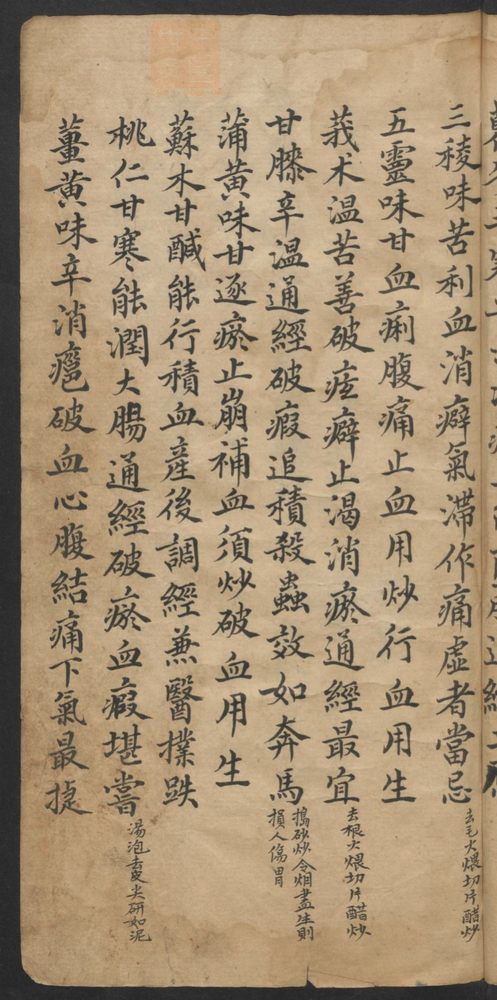 三稜味苦利血消癖氣滯作痛虛者當忌
去毛火煨切片醋炒
五靈味甘血痢腹痛止血用炒行血用生
莪术溫苦善破痃癖止渴消瘀通經最宜
去根火煨切片醋炒
甘膝辛溫通經破瘕追積殺蟲效如奔馬
搗砂炒令烟盡生則
損人傷胃
蒲黄味甘逐瘀止崩補血須炒破血用生
蘇木甘鹹能行積血產後調經兼醫撲跌
桃仁甘寒能潤大腸通經破瘀血瘕堪嘗
湯泡去皮尖研如泥
薑黄味辛消癰破血心腹結痛下氣最捷